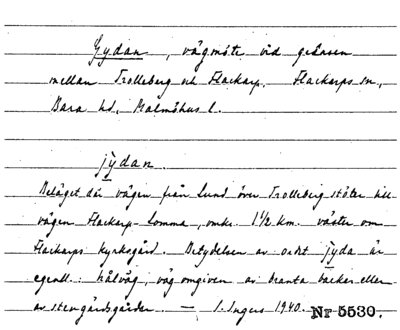 Gydan, vägmöte vid gränsen
mellan Trolleberg och Flackarp. Flackarps sn,
Bara hd, Malmöhus l.
jydan.
Beläget där vägen från Lund över Trolleberg stöter till
vägen Flackarp-Lomma, omkr. 1 1/2 km. väster om
Flackarps kyrkogård. Betydelsen av ordet jyda är
egentl.: hålväg, väg omgiven av branta backar eller
av stengärdsgårdar. — I. Ingers 1940. Nr 5530.